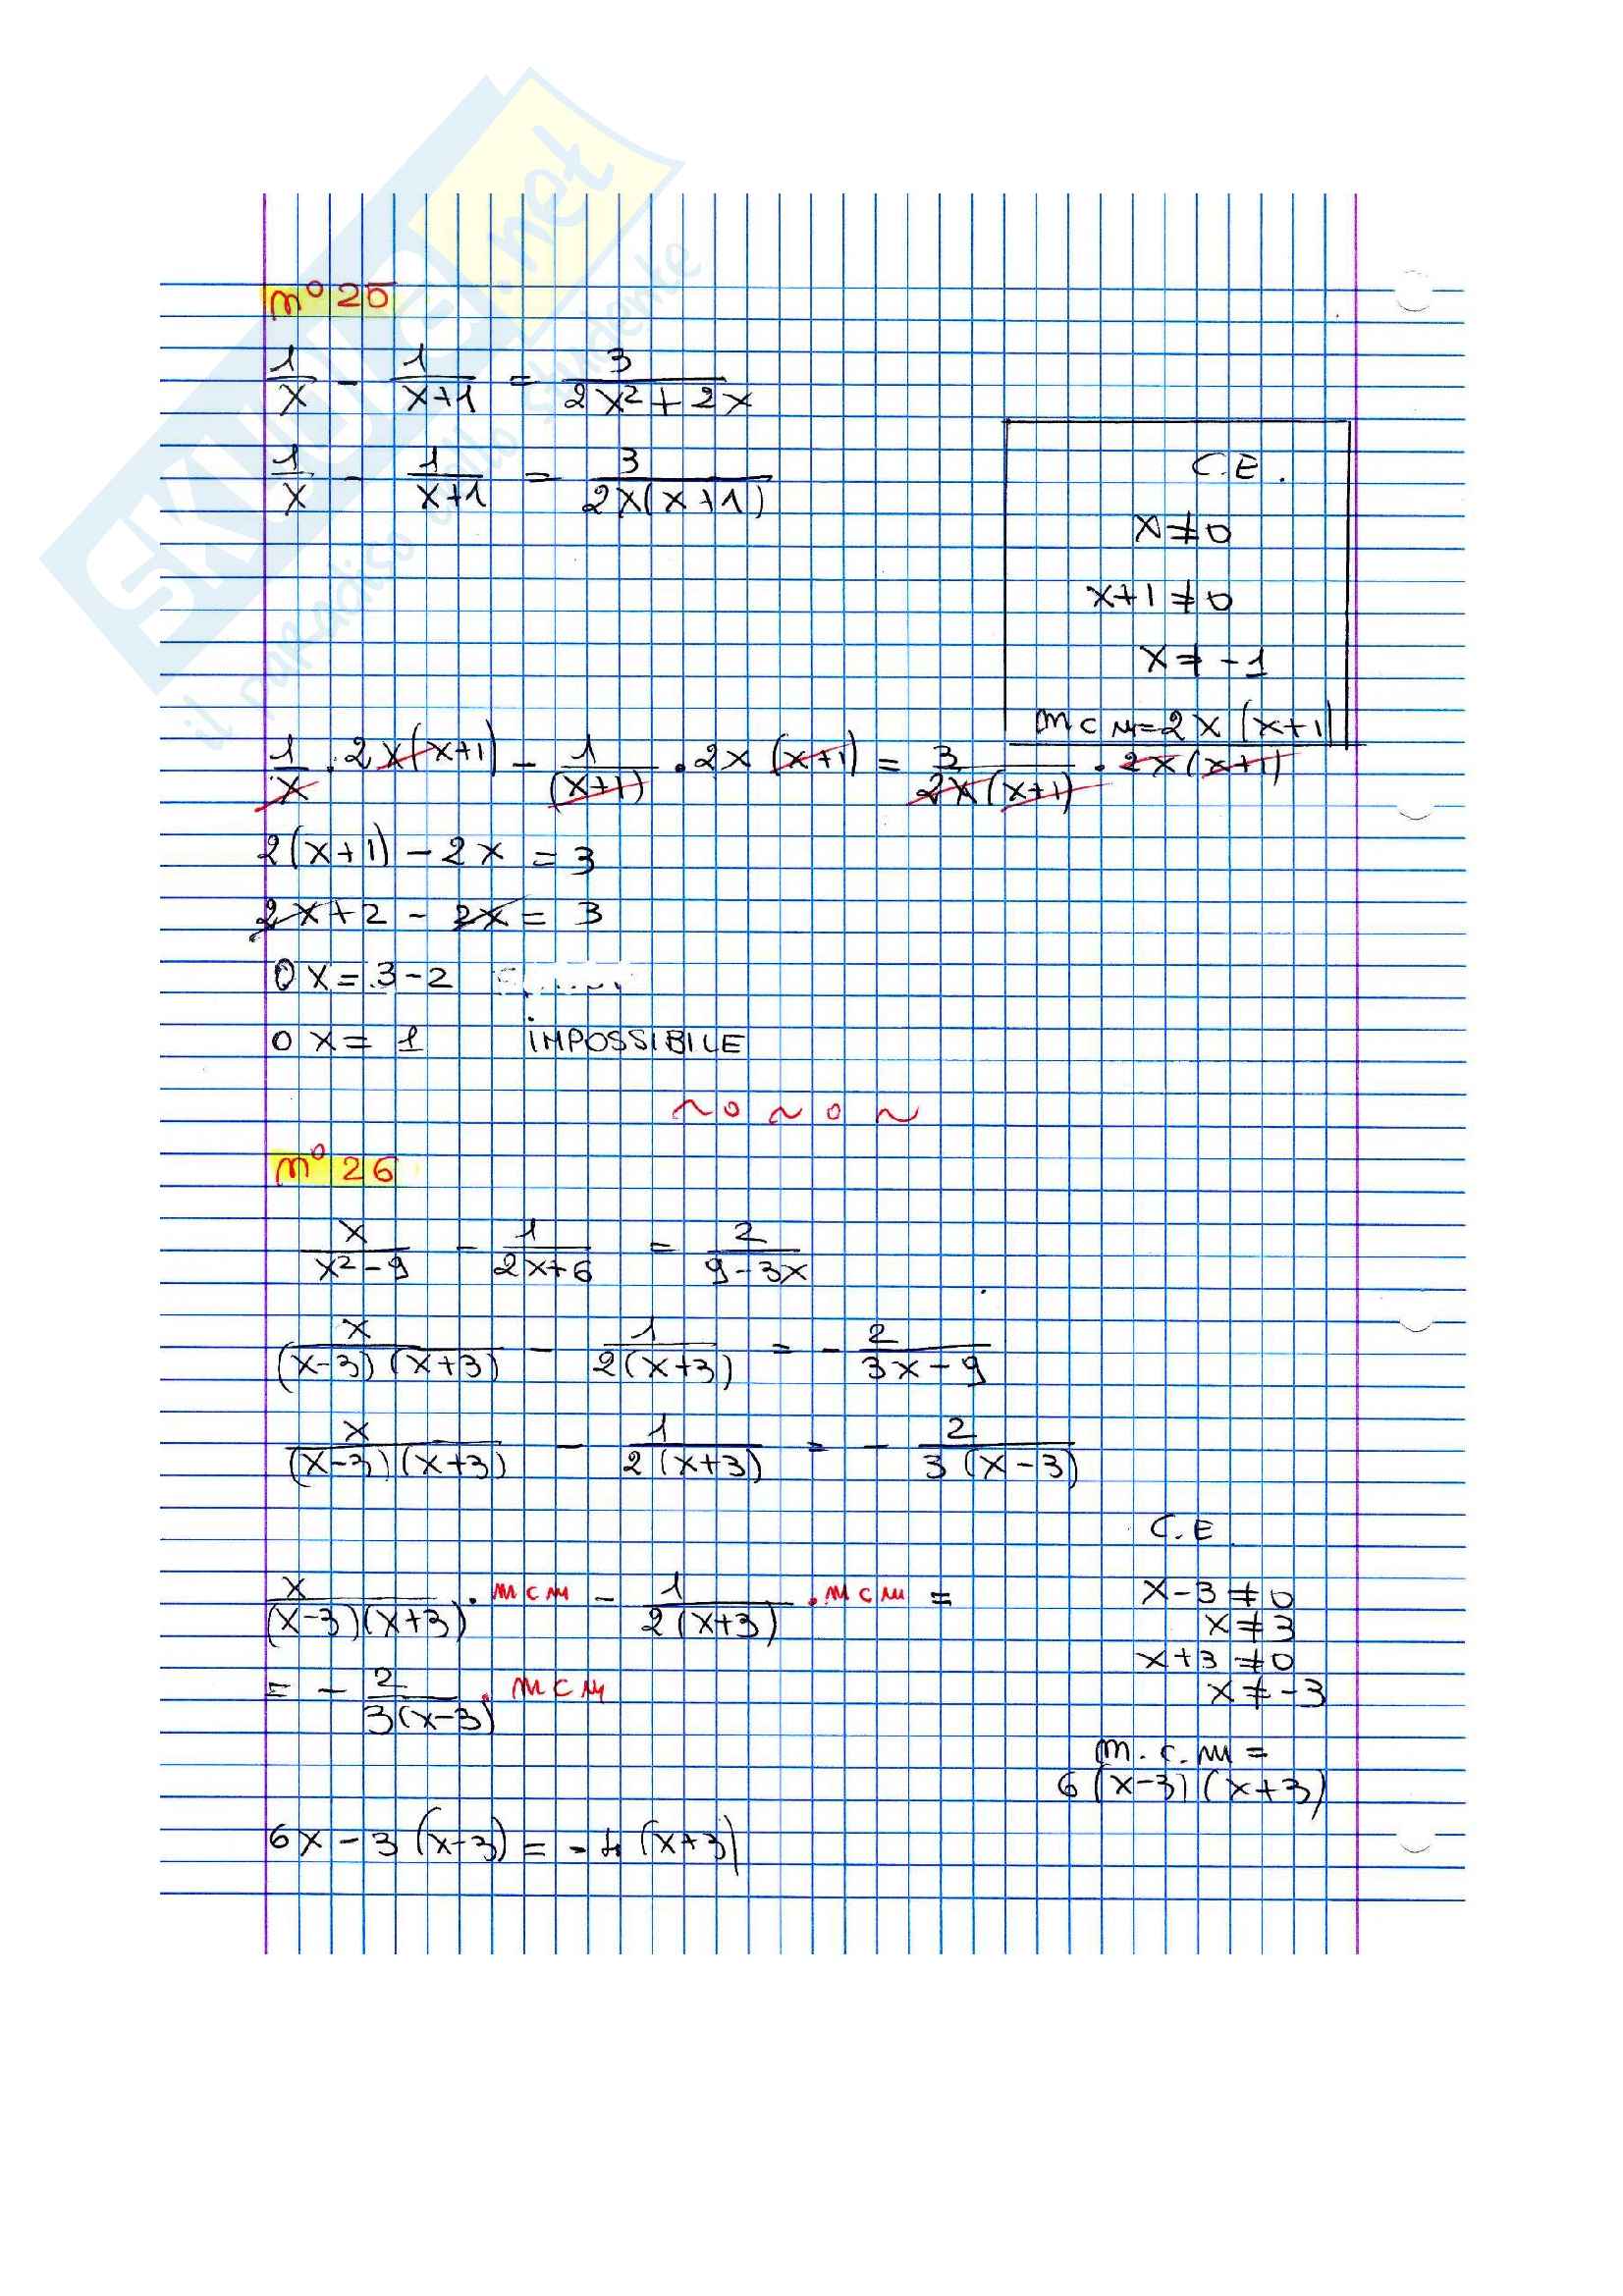 SKUOLA.net
il paradiso dello studente
n° 25
1/x - 1/(x+1) = 3/(2x²+2x)
1/x - 1/(x+1) = 3/(2x(x+1))
C.E.
x ≠ 0
x+1 ≠ 0
x ≠ -1
mcm = 2x(x+1)
1/x · 2x(x+1) - 1/(x+1) · 2x(x+1) = 3/(2x(x+1)) · 2x(x+1)
2(x+1) - 2x = 3
2x+2 - 2x = 3
0x = 3-2
0x = 1 IMPOSSIBILE
n° 26
x/(x²-9) - 1/(2x+6) = 2/(9-3x)
x/((x-3)(x+3)) - 1/(2(x+3)) = - 2/(3x-9)
x/((x-3)(x+3)) - 1/(2(x+3)) = - 2/(3(x-3))
C.E.
x-3 ≠ 0
x ≠ 3
x+3 ≠ 0
x ≠ -3
m.c.m =
6(x-3)(x+3)
x/((x-3)(x+3)) · mcm - 1/(2(x+3)) · mcm =
= - 2/(3(x-3)) · mcm
6x - 3(x-3) = -4(x+3)